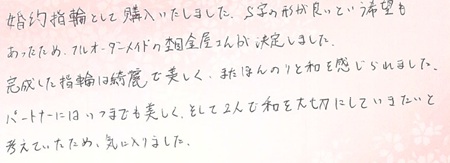 婚約指輪として購入いたしました。S字の形が良いという希望も
あったため、フルオーダーメイドの杢目金屋さんが決定しました。
完成した指輪は綺麗で美しく、またほんのりと和を感じられました。
パートナーにはいつまでも美しく、そして2人で和を大切にしていきたいと
考えていたため、気に入りました。